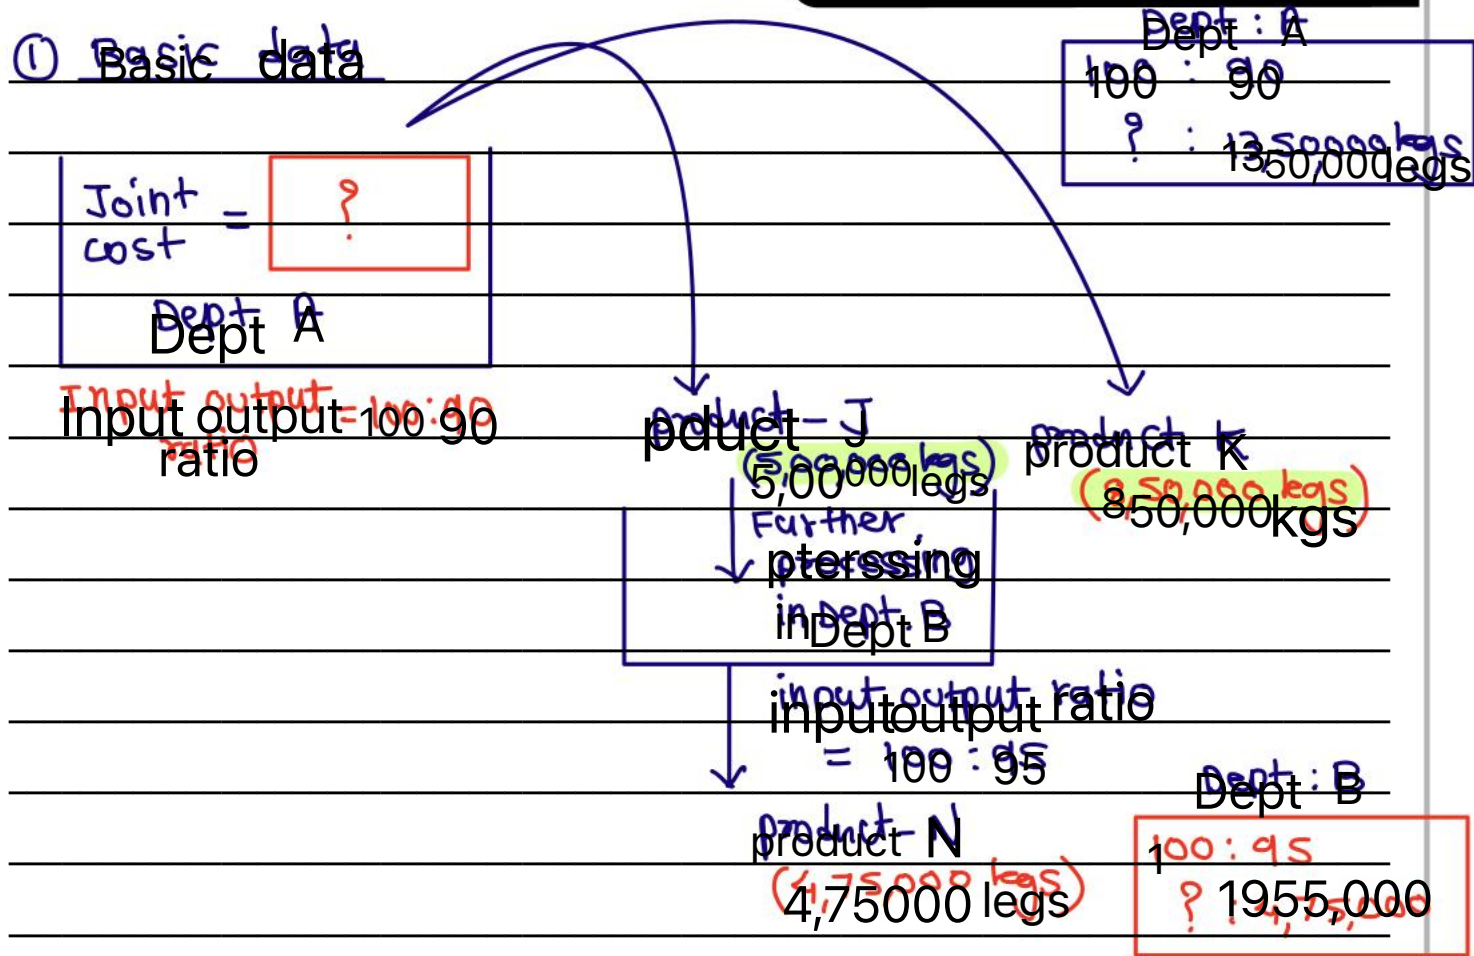 ① Basic data
Dept : A
100 : 90
? : 1350000 kgs
Joint cost = ?
Dept A
Input output ratio = 100:90
product - J
(5,00,000 kgs)
product K
(8,50,000 kgs)
Further
processing
in Dept. B
input output ratio
= 100 : 95
product - N
(4,75,000 kgs)
Dept : B
100 : 95
? : 4,75,000